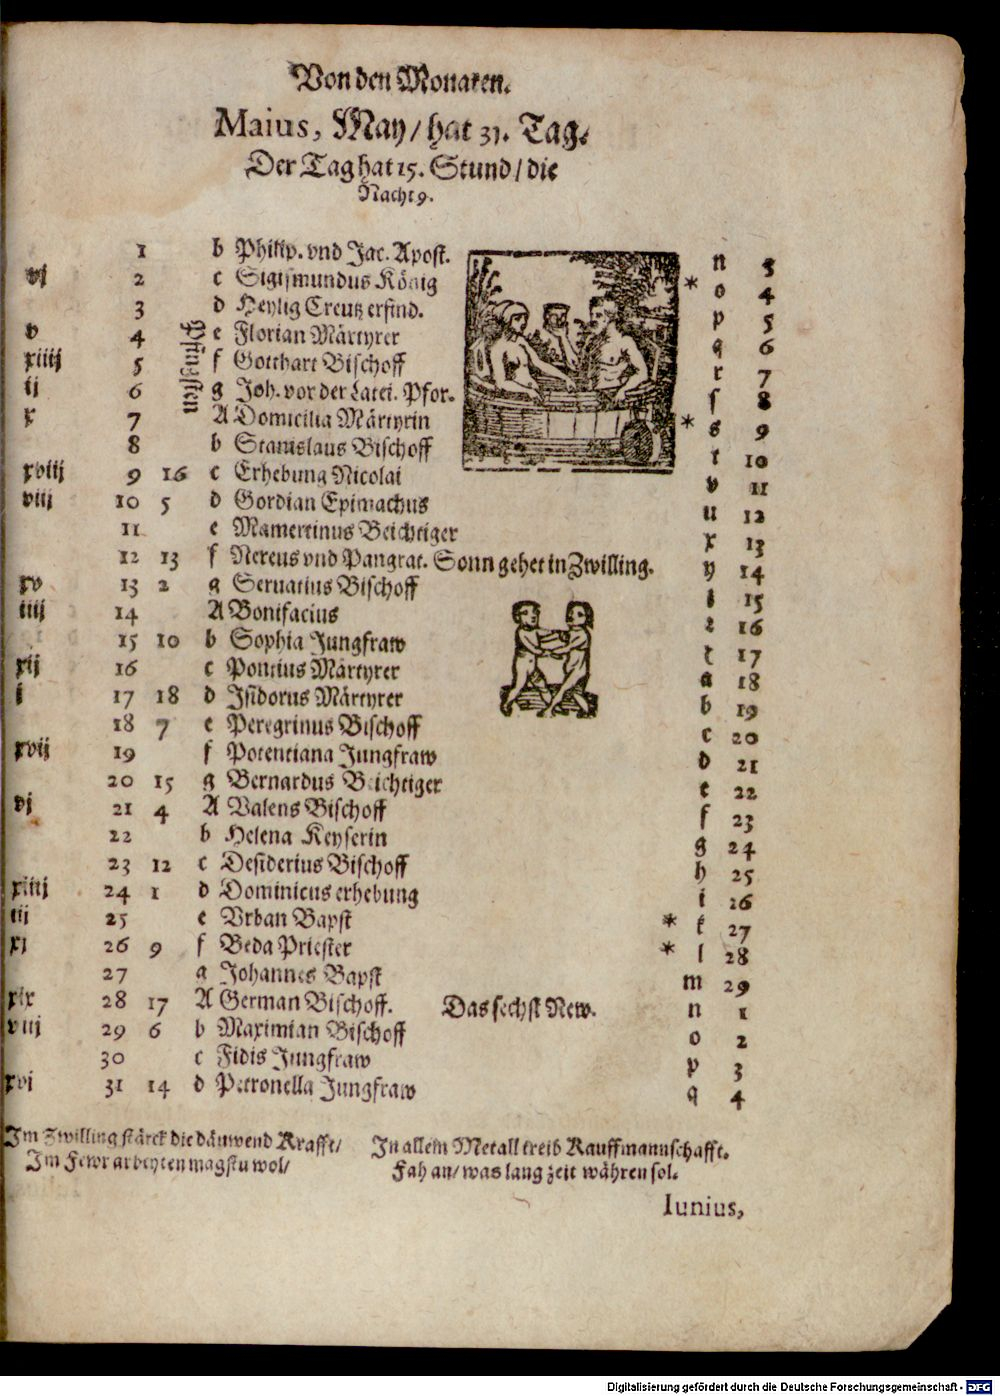 Von den Monaten.
Maius, May/ hat 31. Tag.
Der Tag hat 15. Stund/ die
Nacht 9.
Pfingsten
1 b Philip. vnd Jac. Apost. n 3
vj 2 c Sigismundus König * o 4
3 d Heylig Creutz erfind. p 5
v 4 e Florian Märtyrer q 6
xiiij 5 f Gotthart Bischoff r 7
ij 6 g Joh. vor der Latei. Pfor. ſ 8
x 7 A Domicilia Märtyrin * s 9
8 b Stanislaus Bischoff t 10
xviij 9 16 c Erhebung Nicolai v 11
viij 10 5 d Gordian Epimachus u 12
11 e Mamertinus Beichtiger x 13
12 13 f Nereus vnd Pangrat. Sonn gehet in Zwilling. y 14
xv 13 2 g Seruatius Bischoff 15
iiij 14 A Bonifacius 16
15 10 b Sophia Jungfraw 17
xij 16 c Pontius Märtyrer a 18
j 17 18 d Isidorus Märtyrer b 19
18 7 e Peregrinus Bischoff c 20
xvij 19 f Potentiana Jungfraw d 21
20 15 g Bernardus Beichtiger e 22
vj 21 4 A Valens Bischoff f 23
22 b Helena Keyserin g 24
23 12 c Desiderius Bischoff h 25
xiiij 24 1 d Dominicus erhebung i 26
iij 25 e Vrban Bapst * k 27
xj 26 9 f Beda Priester * l 28
27 g Johannes Bapst m 29
xix 28 17 A German Bischoff. Das sechst New. n 1
viij 29 6 b Maximian Bischoff o 2
30 c Fidis Jungfraw p 3
xvj 31 14 d Petronella Jungfraw q 4
Im Zwilling stärck die däuwend Krafft/ In allem Metall treib Kauffmannschafft.
Im Fewr arbeyten magstu wol/ Fah an/ was lang zeit währen sol.
Iunius,
Digitalisierung gefördert durch die Deutsche Forschungsgemeinschaft - DFG